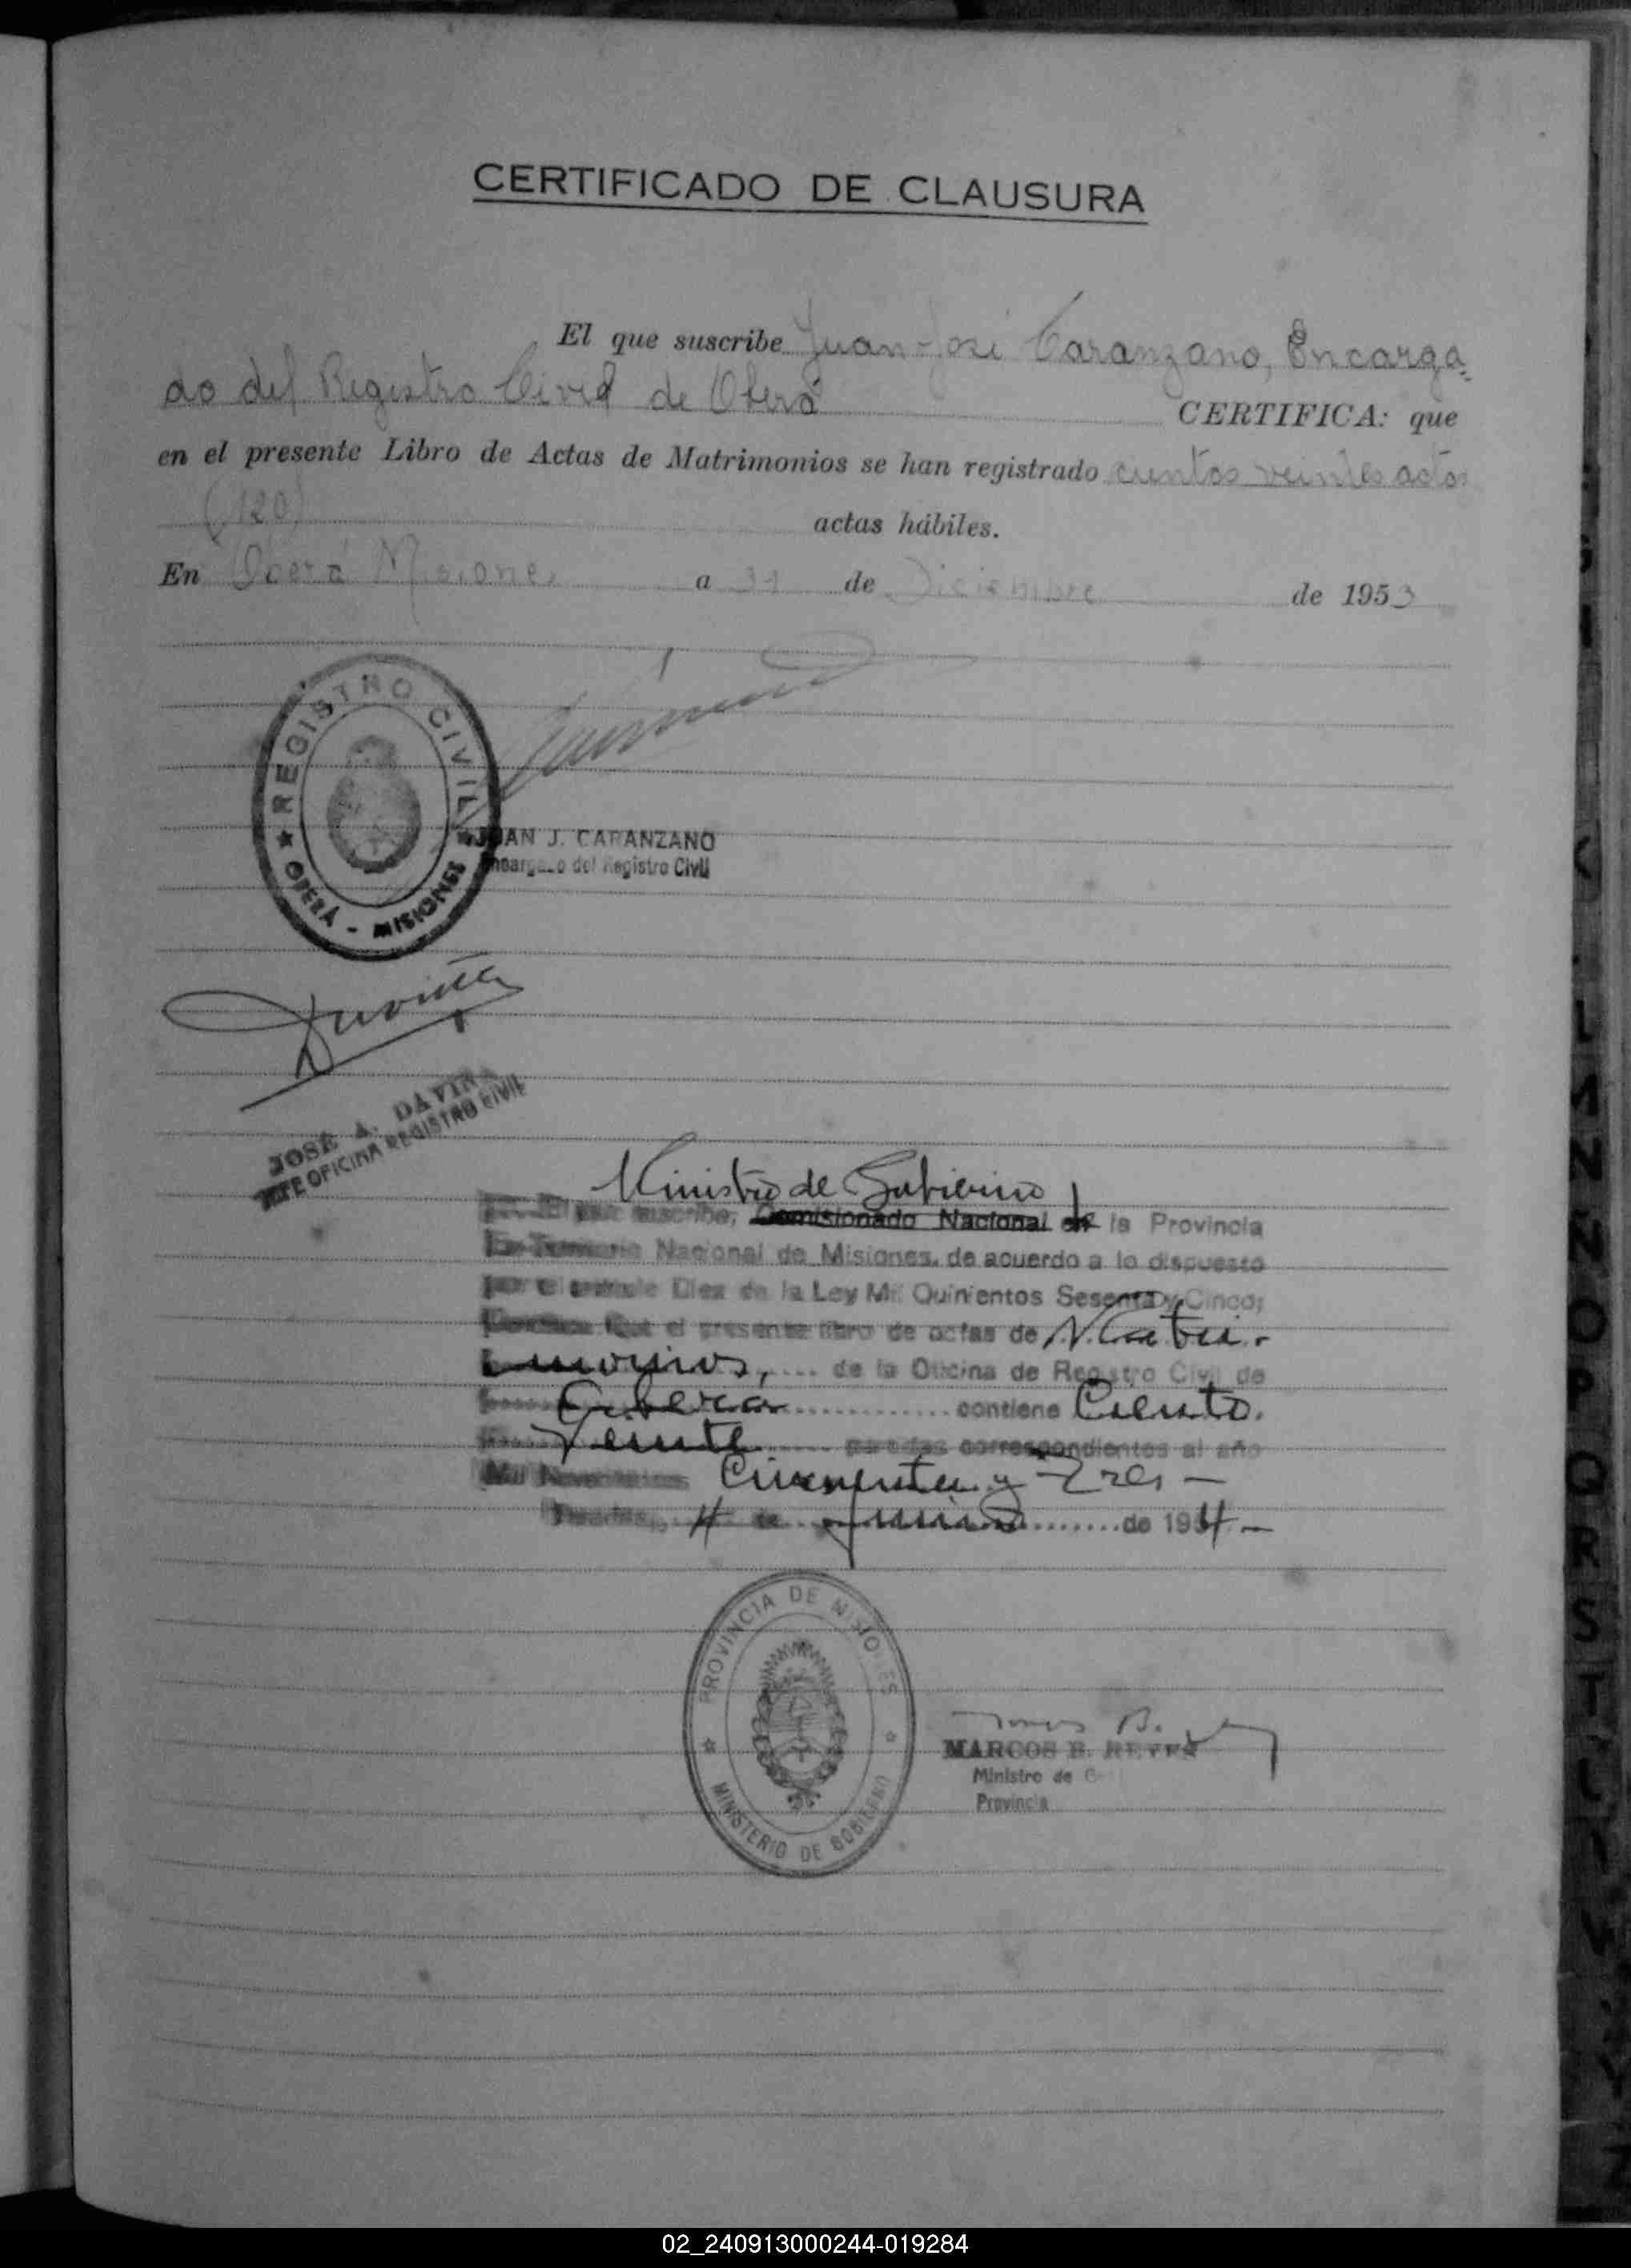 CERTIFICADO DE CLAUSURA
El que suscribe Juan José Caranzano, Encarga
do del Registro Civil de Oberá CERTIFICA: que
en el presente Libro de Actas de Matrimonios se han registrado cientos veintes actas
(120) actas hábiles.
En Oberá Misiones a 31 de Diciembre de 1953
REGISTRO CIVIL
OBERÁ - MISIONES
JUAN J. CARANZANO
Encargado del Registro Civil
JOSE A. DAVIÑA
JEFE OFICINA REGISTRO CIVIL
Ministro de Gobierno
El que suscribe, Comisionado Nacional en la Provincia
Nacional de Misiones, de acuerdo a lo dispuesto
por el Diez de la Ley Mil Quinientos Sesenta y Cinco;
Que el presente libro de actas de Matri-
monios, de la Oficina de Registro Civil de
Oberá contiene Ciento
Veinte partidas correspondientes al año
Mil Novecientos Cincuenta y Tres -
4 de junio de 1954 -
PROVINCIA DE MISIONES
MINISTERIO DE GOBIERNO
MARCOS B. REYES
Ministro de
Provincia
02_240913000244-019284